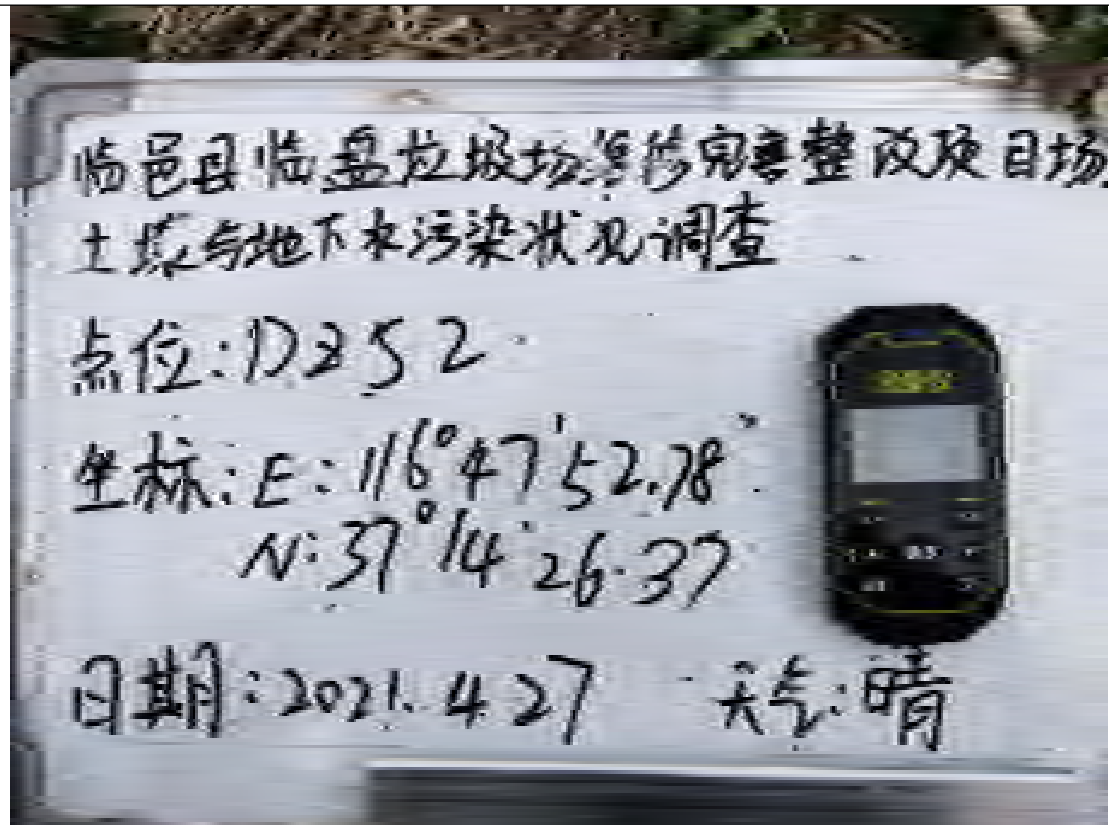 临邑县临盘垃圾场渗停完善整改项目场
土壤与地下水污染状况调查
点位:DZS2
坐标:E:116°47'52.78"
N:37°14'26.37
日期:2021.4.27 天气:晴